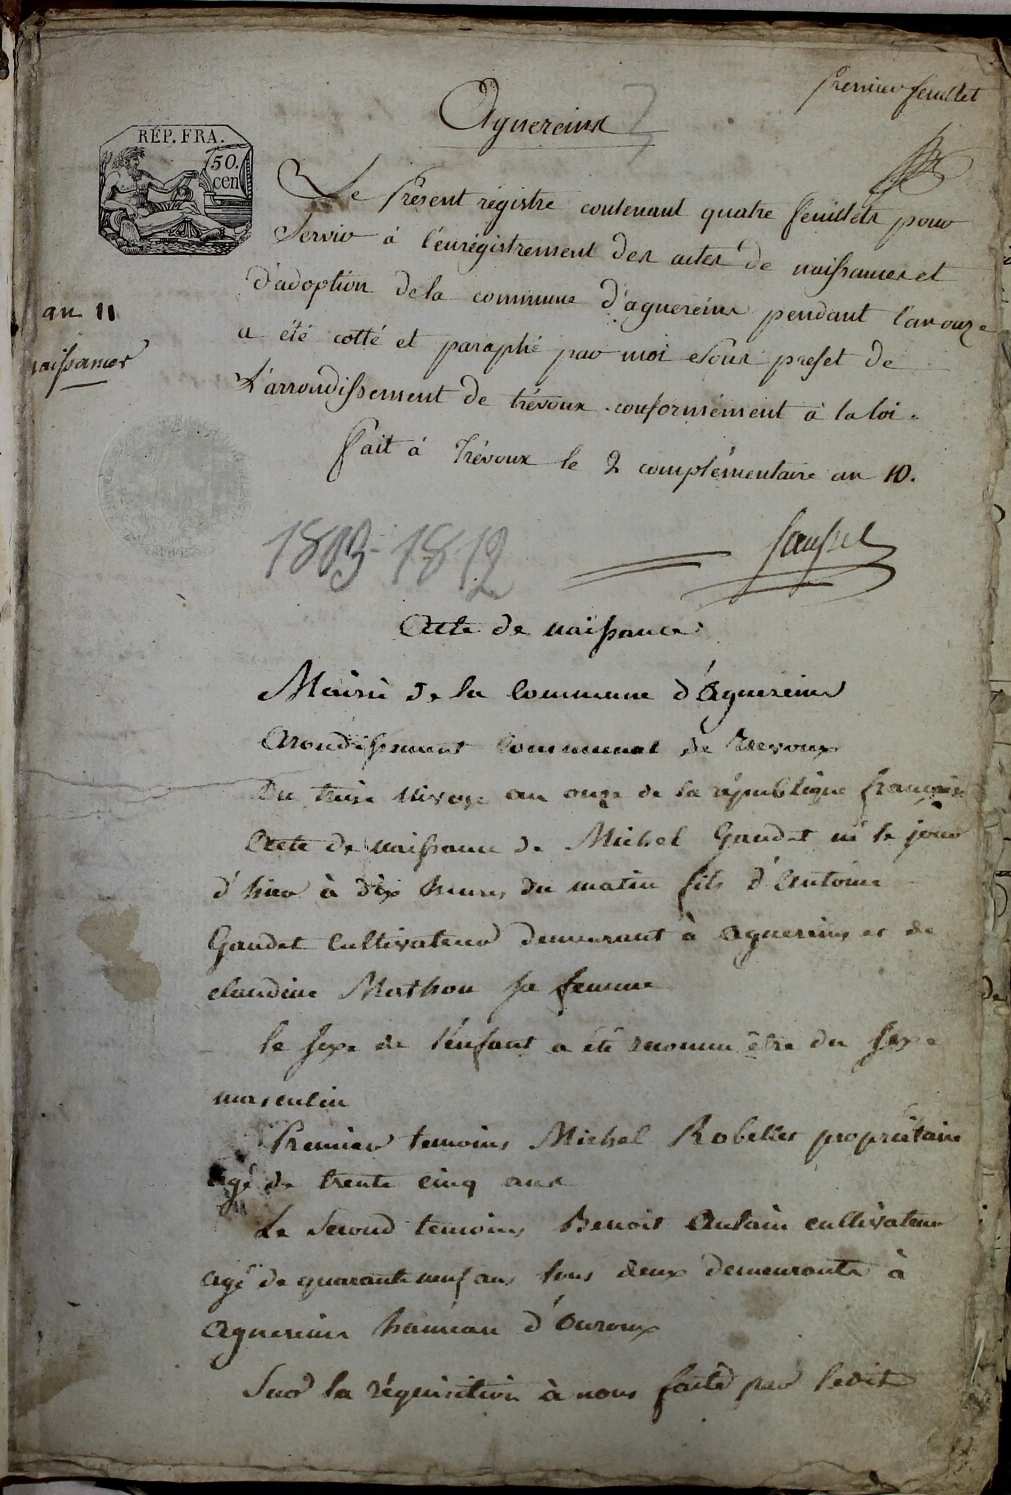 premier feuillet
Aguereins
RÉP. FRA.
50. cen
Le Présent régistre contenant quatre feuillets pour
Servir à l'enregistrement des actes de naissances et
d'adoption de la commune d'aguereins pendant l'an onze
a été cotté et paraphé par moi Sous prefet de
L'arrondissement de trévoux conformément à la loi.
an 11
naissances
fait à Trévoux le 2 complémentaire an 10.
1803-1812
Acte de naissance
Mairie de la Commune d'Aguereins
Arondissement Communal de Trevoux
Du treise Nivose an onze de la république française
Acte de naissance de Michel Gaudet né le jour
d'hier à dix heures du matin fils d'Antoine
Gaudet Cultivateur demeurant à Aguereins et de
claudine Mathon sa femme
le sexe de l'enfant a été reconnu être du sexe
masculin
Premier temoins Michel Robellet propriétaire
agé de trente cinq ans
Le Second temoins Benoit cultivateur
agé de quarante neuf ans tous deux demeurants à
Aguereins hameau d'Ouroux
Sur la réquisition à nous faite par ledit